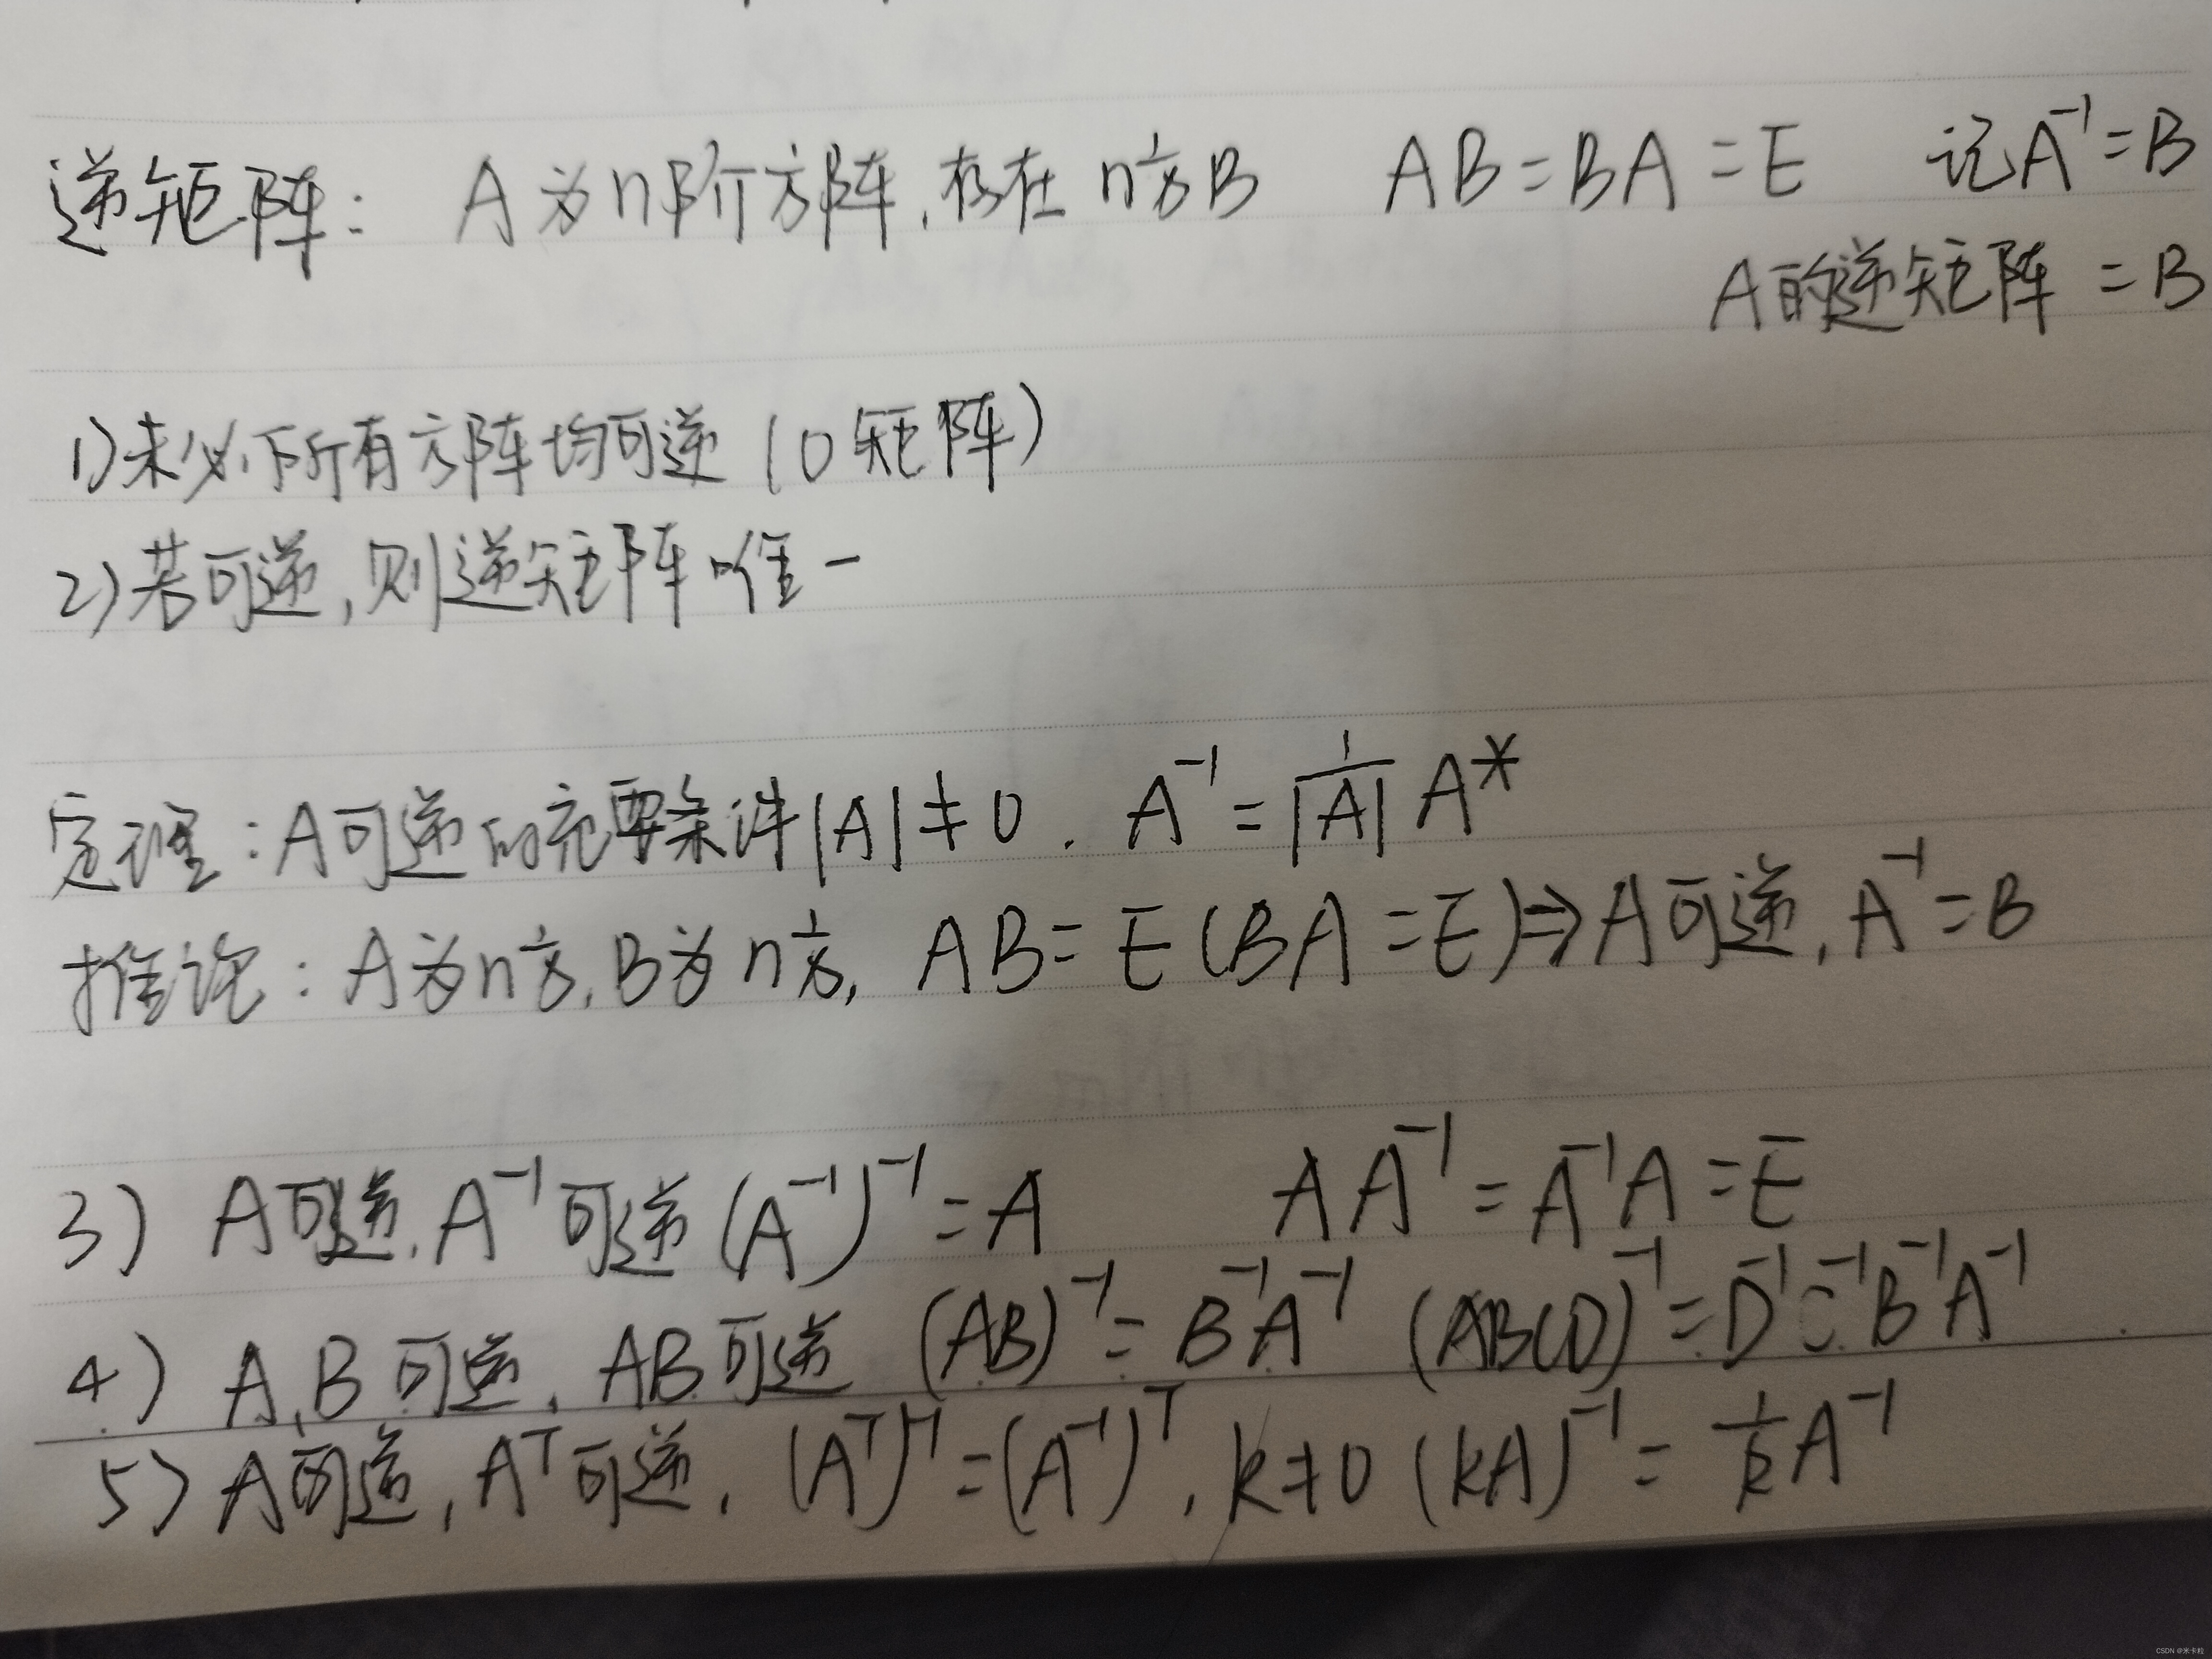 逆矩阵: A为n阶方阵,存在n方B AB=BA=E 记A⁻¹=B
A的逆矩阵=B
1)未必所有方阵均可逆(0矩阵)
2)若可逆,则逆矩阵唯一
定理:A可逆的充要条件|A|≠0. A⁻¹=1/|A| A*
推论:A为n方,B为n方, AB=E(BA=E)⇒A可逆,A⁻¹=B
3) A可逆,A⁻¹可逆(A⁻¹)⁻¹=A AA⁻¹=A⁻¹A=E
4) A,B可逆,AB可逆 (AB)⁻¹=B⁻¹A⁻¹ (ABCD)⁻¹=D⁻¹C⁻¹B⁻¹A⁻¹
5) A可逆,Aᵀ可逆,(Aᵀ)⁻¹=(A⁻¹)ᵀ,k≠0 (kA)⁻¹=1/k A⁻¹
CSDN @米卡粒